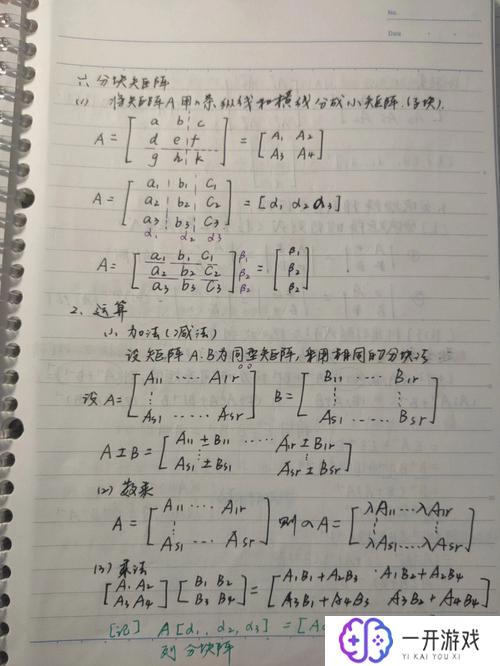 No.
Date
六 分块矩阵
(1) 将矩阵A用n条纵线和横线分成小矩阵(分块).
A = [ a b c
d e f
g h k ] = [ A₁ A₂
A₃ A₄ ]
A = [ a₁ b₁ c₁
a₂ b₂ c₂
a₃ b₃ c₃ ] = [α₁ α₂ α₃]
α₁ α₂ α₃
A = [ a₁ b₁ c₁
a₂ b₂ c₂
a₃ b₃ c₃ ] β₁ β₂ β₂ = [ β₁
β₂
β₂ ]
2. 运算
(1) 加法(减法)
设矩阵A.B为同型矩阵,采用相同的分块法
设 A = [ A₁₁ ···· A₁r
⋮
As₁ ···· Asr ] B = [ B₁₁ ···· B₁r
⋮
As₁ ···· Bsr ]
A±B = [ A₁₁±B₁₁ ····· A₁r±B₁r
⋮
As₁±Bs₁ Asr±Bsr ]
(2) 数乘
A = [ A₁₁ ···· A₁r
⋮
As₁ ··· Asr ] 则λA = [ λA₁₁ ···· λA₁r
⋮ ⋮
λAs₁ ···· λAsr ]
(3) 乘法
[ A₁ A₂
A₃ A₄ ] [ B₁ B₂
B₃ B₄ ] = [ A₁B₁+A₂B₃ · A₁B₂+A₂B₄
A₃B₁+A₄B₃ A₃B₂+A₄B₄ ]
[记] A[α₁, α₂, α₃] = [A
列分块阵
一开游戏
YI KAI YOU XI